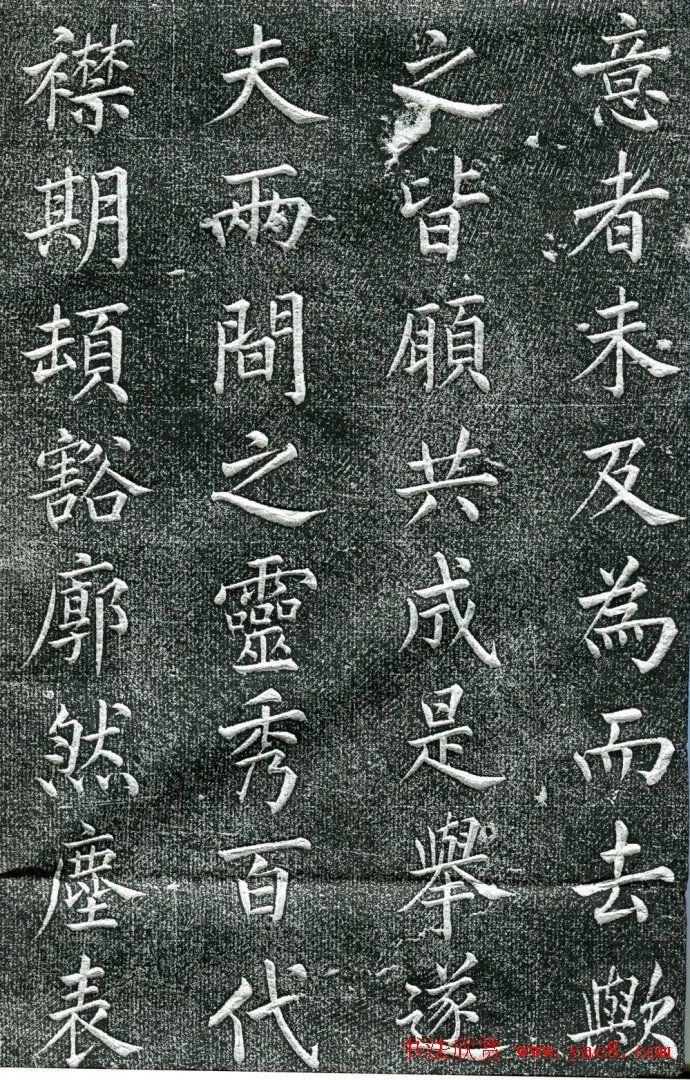 意者未及為而去歟
之皆願共成是舉遂
夫兩間之靈秀百代
襟期頡豁廓然塵表
书法欣赏 www.yac8.com